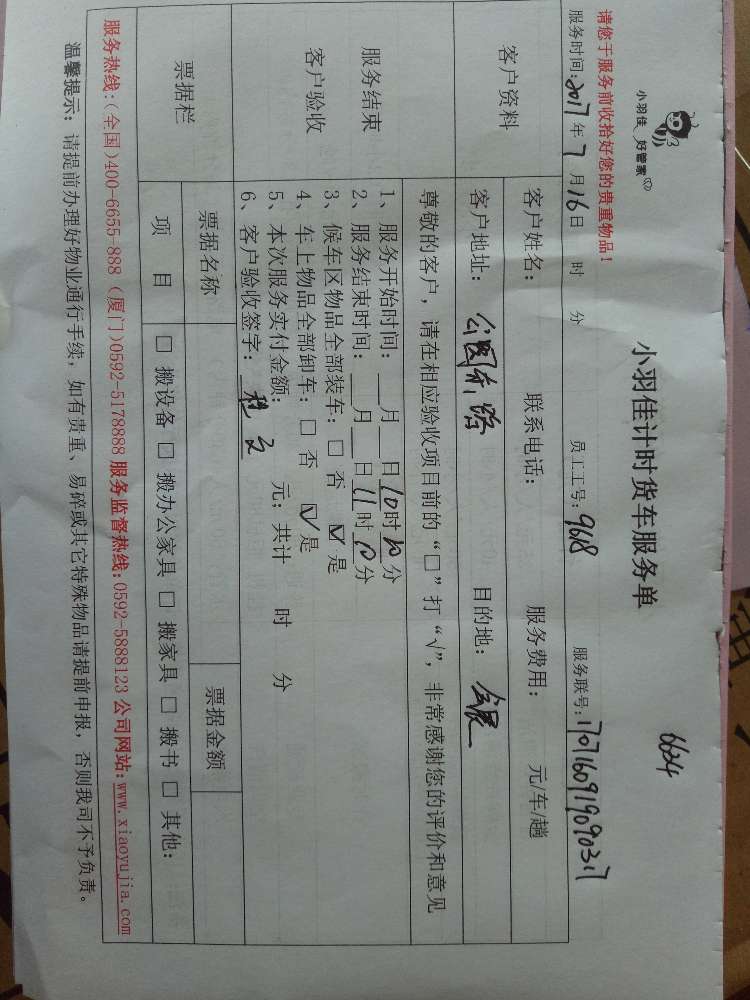 6624
小羽佳 好管家
小羽佳计时货车服务单
请您于服务前收拾好您的贵重物品！
服务时间：2017年 7 月 16日 时 分 员工工号：9618 服务联号：1707160919090317
客户资料
客户姓名： 联系电话： 服务费用： 元/车/趟
客户地址： 公园东路 目的地： 会展
服务结束
客户验收
尊敬的客户，请在相应验收项目前的“□”打“√”，非常感谢您的评价和意见
1、服务开始时间：__月__日10时10分
2、服务结束时间：__月__日11时10分
3、候车区物品全部装车：□ 否 ☑ 是
4、车上物品全部卸车：□ 否 ☑ 是
5、本次服务实付金额： 元；共计 时 分
6、客户验收签字：
票据栏
票据名称 票据金额
项 目 □ 搬设备 □ 搬办公家具 □ 搬家具 □ 搬书 □ 其他：
服务热线：（全国）400-6655-888 （厦门）0592-5178888 服务监督热线：0592-5888123 公司网站：www.xiaoyujia.com
温馨提示：请提前办理好物业通行手续，如有贵重、易碎或其它特殊物品请提前申报，否则我司不予负责。